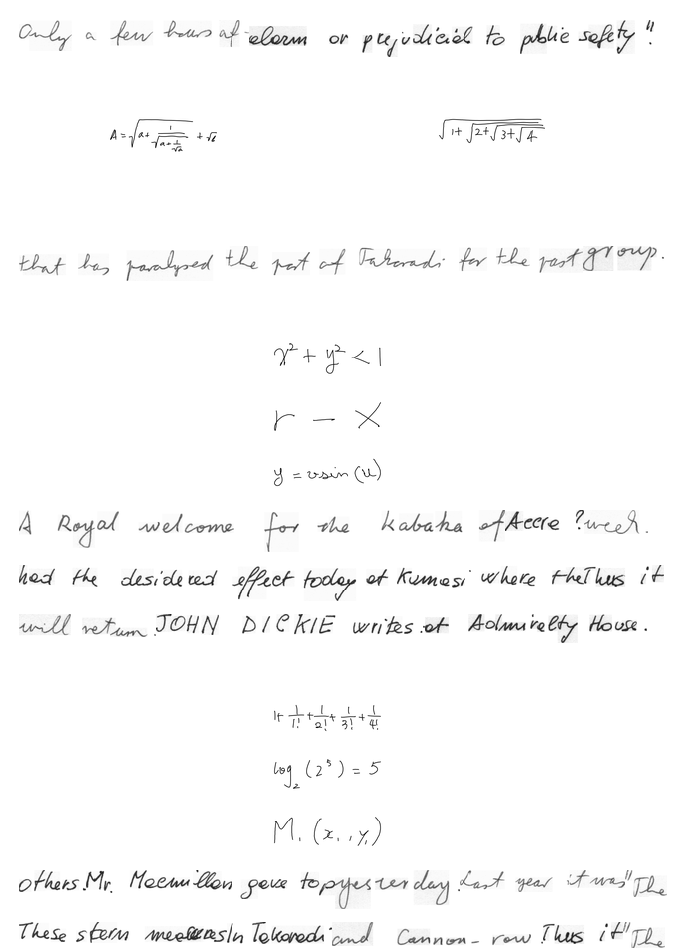 Only a few hours of alarm or prejudicial to public safety".
A = \sqrt{a + \frac{1}{\sqrt{a + \frac{1}{\sqrt{a}}}}} + \sqrt{b} \sqrt{1 + \sqrt{2 + \sqrt{3 + \sqrt{4}}}}
that has paralysed the port of Takoradi for the past group.
x² + y² < 1
r - x
y = v sin (u)
A Royal welcome for the Kabaka of Accra ? week.
had the desidered effect today at Kumasi where the Thus it
will return. JOHN DICKIE writes at Admiralty House.
1 + \frac{1}{1!} + \frac{1}{2!} + \frac{1}{3!} + \frac{1}{4!}
log₂ (2⁵) = 5
M₁ (x₁, y₁)
others. Mr. Macmillan gave top yesterday. Last year it was "The
These stern measures In Takoradi and Cannon-row Thus it "The